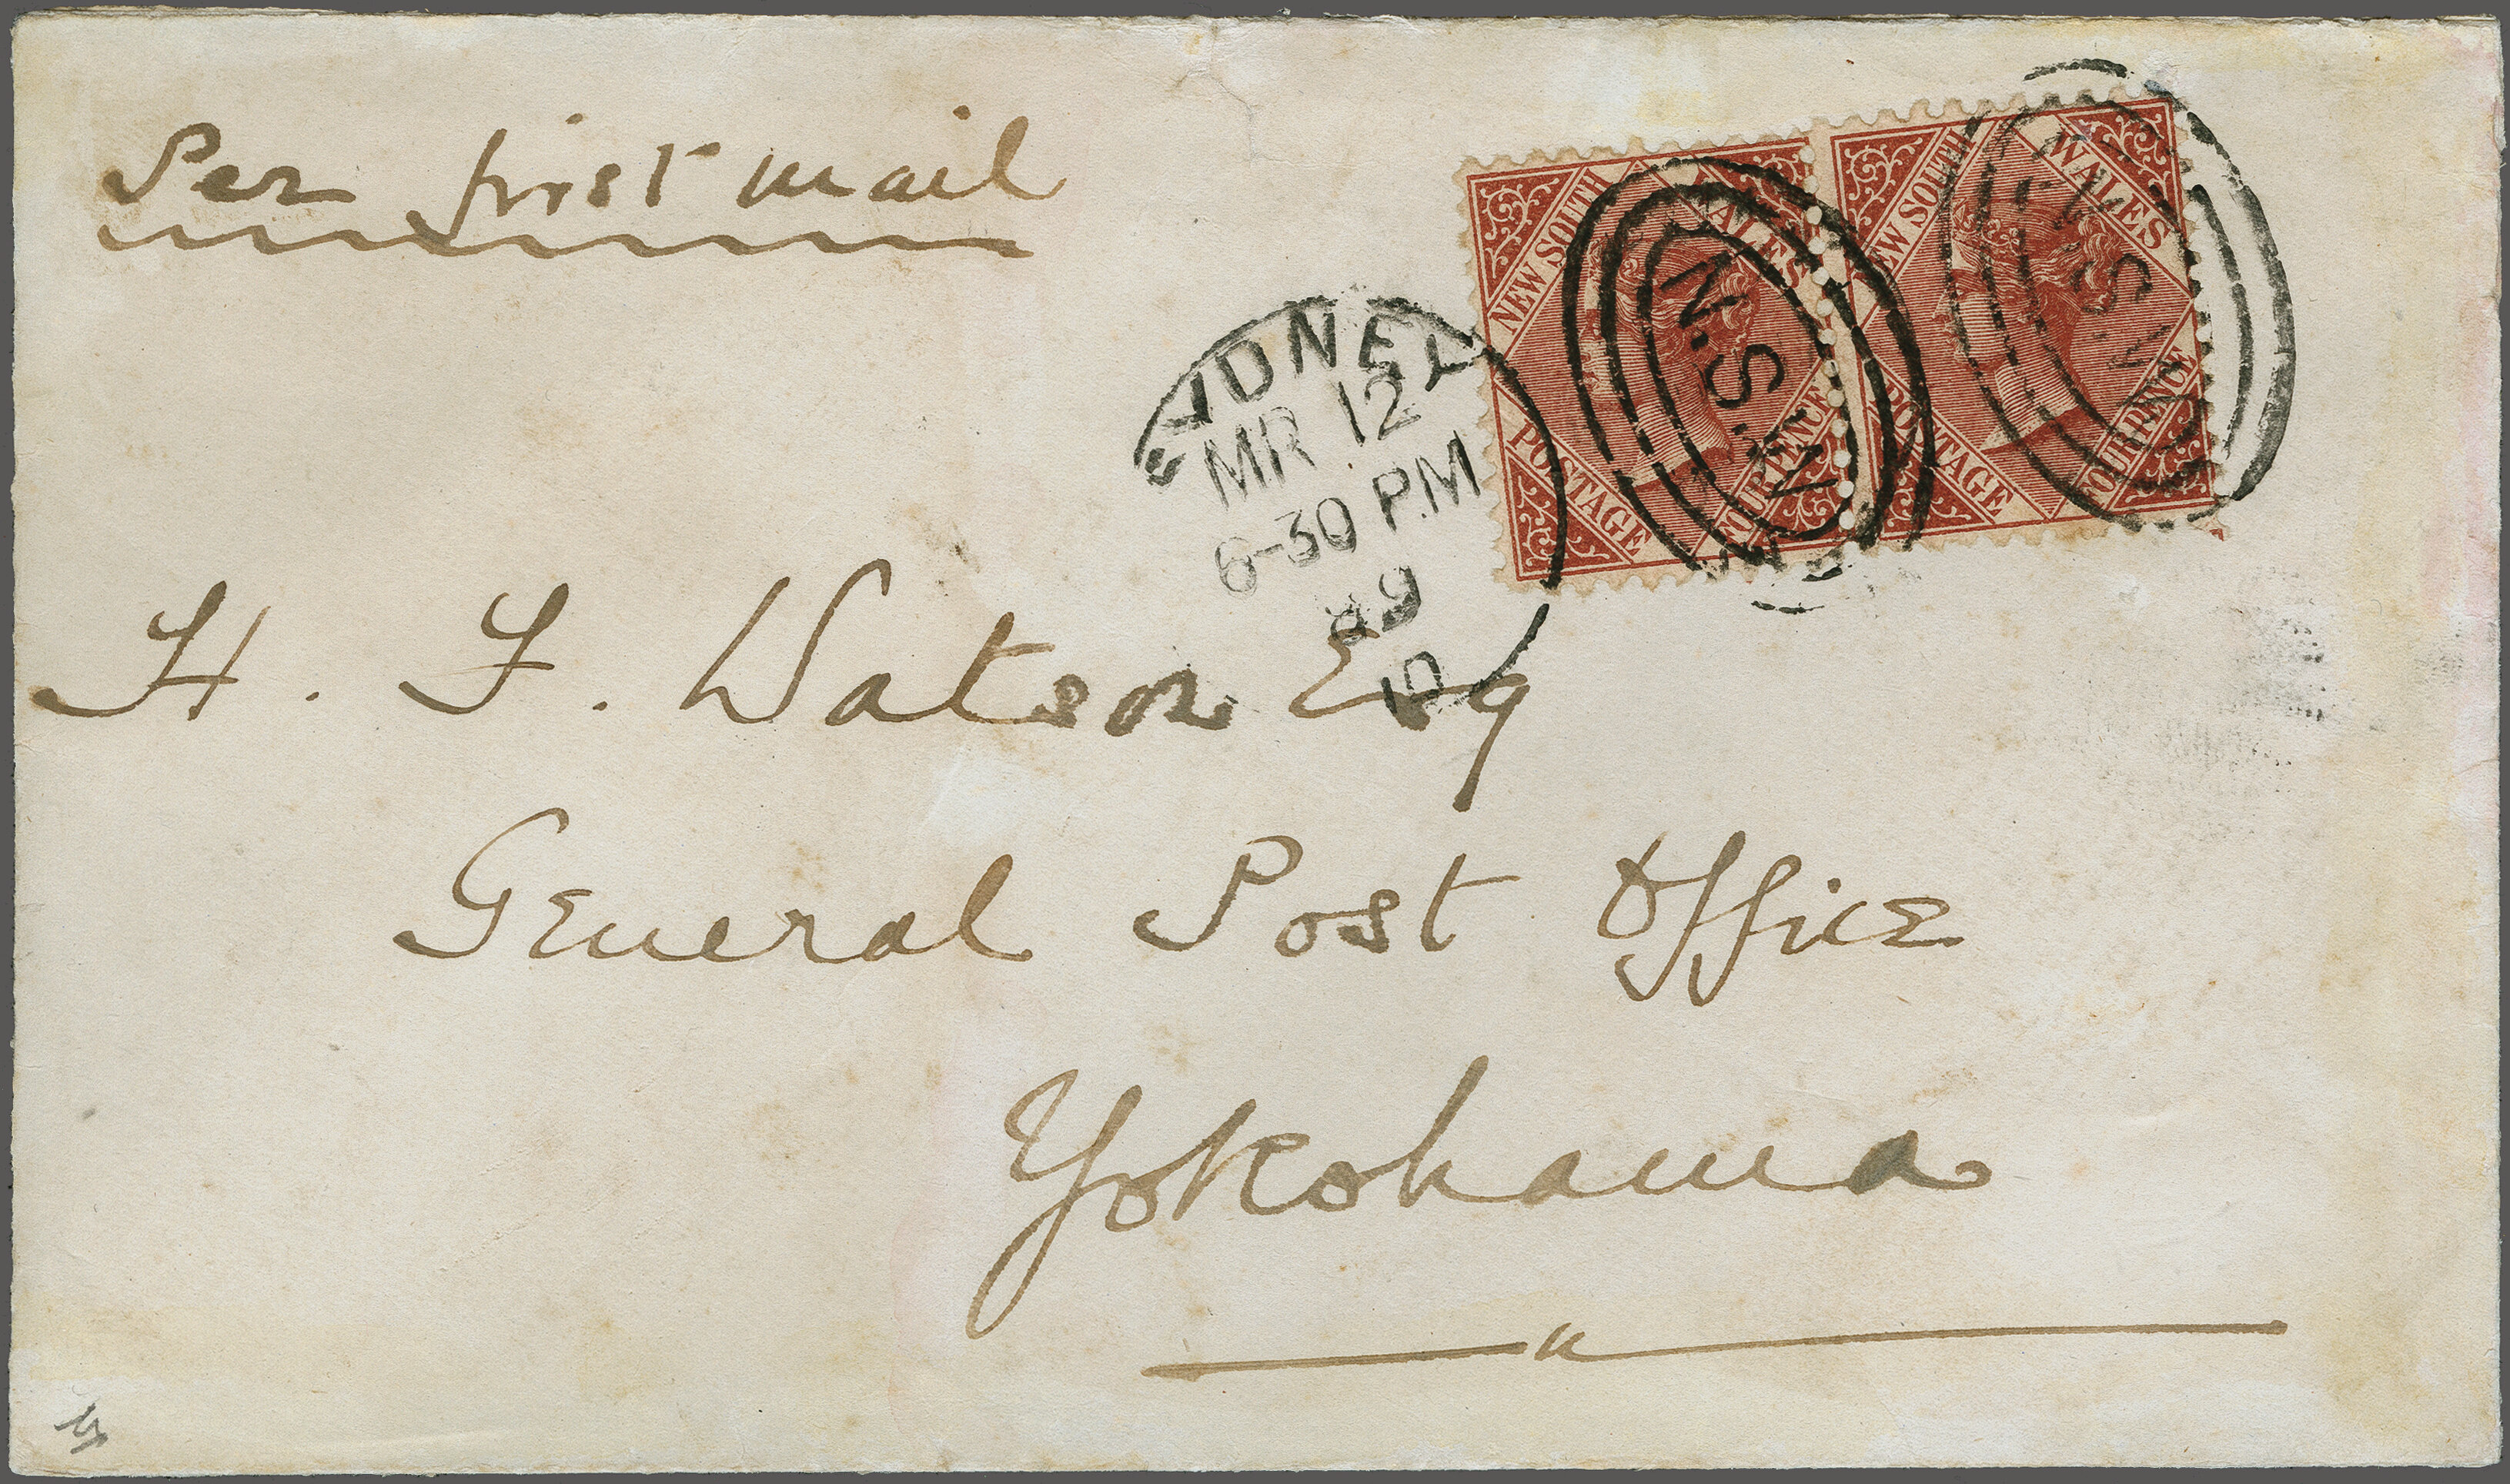 Per first mail
SYDNEY
MR 12
6-30 P.M
89
10
NEW SOUTH WALES
POSTAGE FOUR PENCE
N.S.W
NEW SOUTH WALES
POSTAGE FOUR PENCE
N.S.W
H. F. Watson Esq
General Post Office
Yokohama